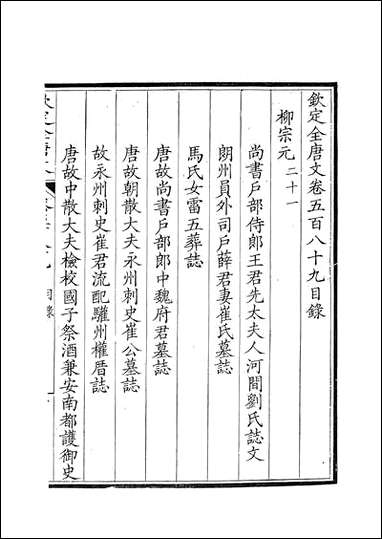 欽定全唐文卷五百八十九目錄
柳宗元二十一
尚書戶部侍郎王君先太夫人河間劉氏誌文
朗州員外司戶薛君妻崔氏墓誌
馬氏女雷五葬誌
唐故尚書戶部郎中魏府君墓誌
唐故朝散大夫永州刺史崔公墓誌
故永州刺史崔君流配驩州權厝誌
唐故中散大夫檢校國子祭酒兼安南都護御史
目錄